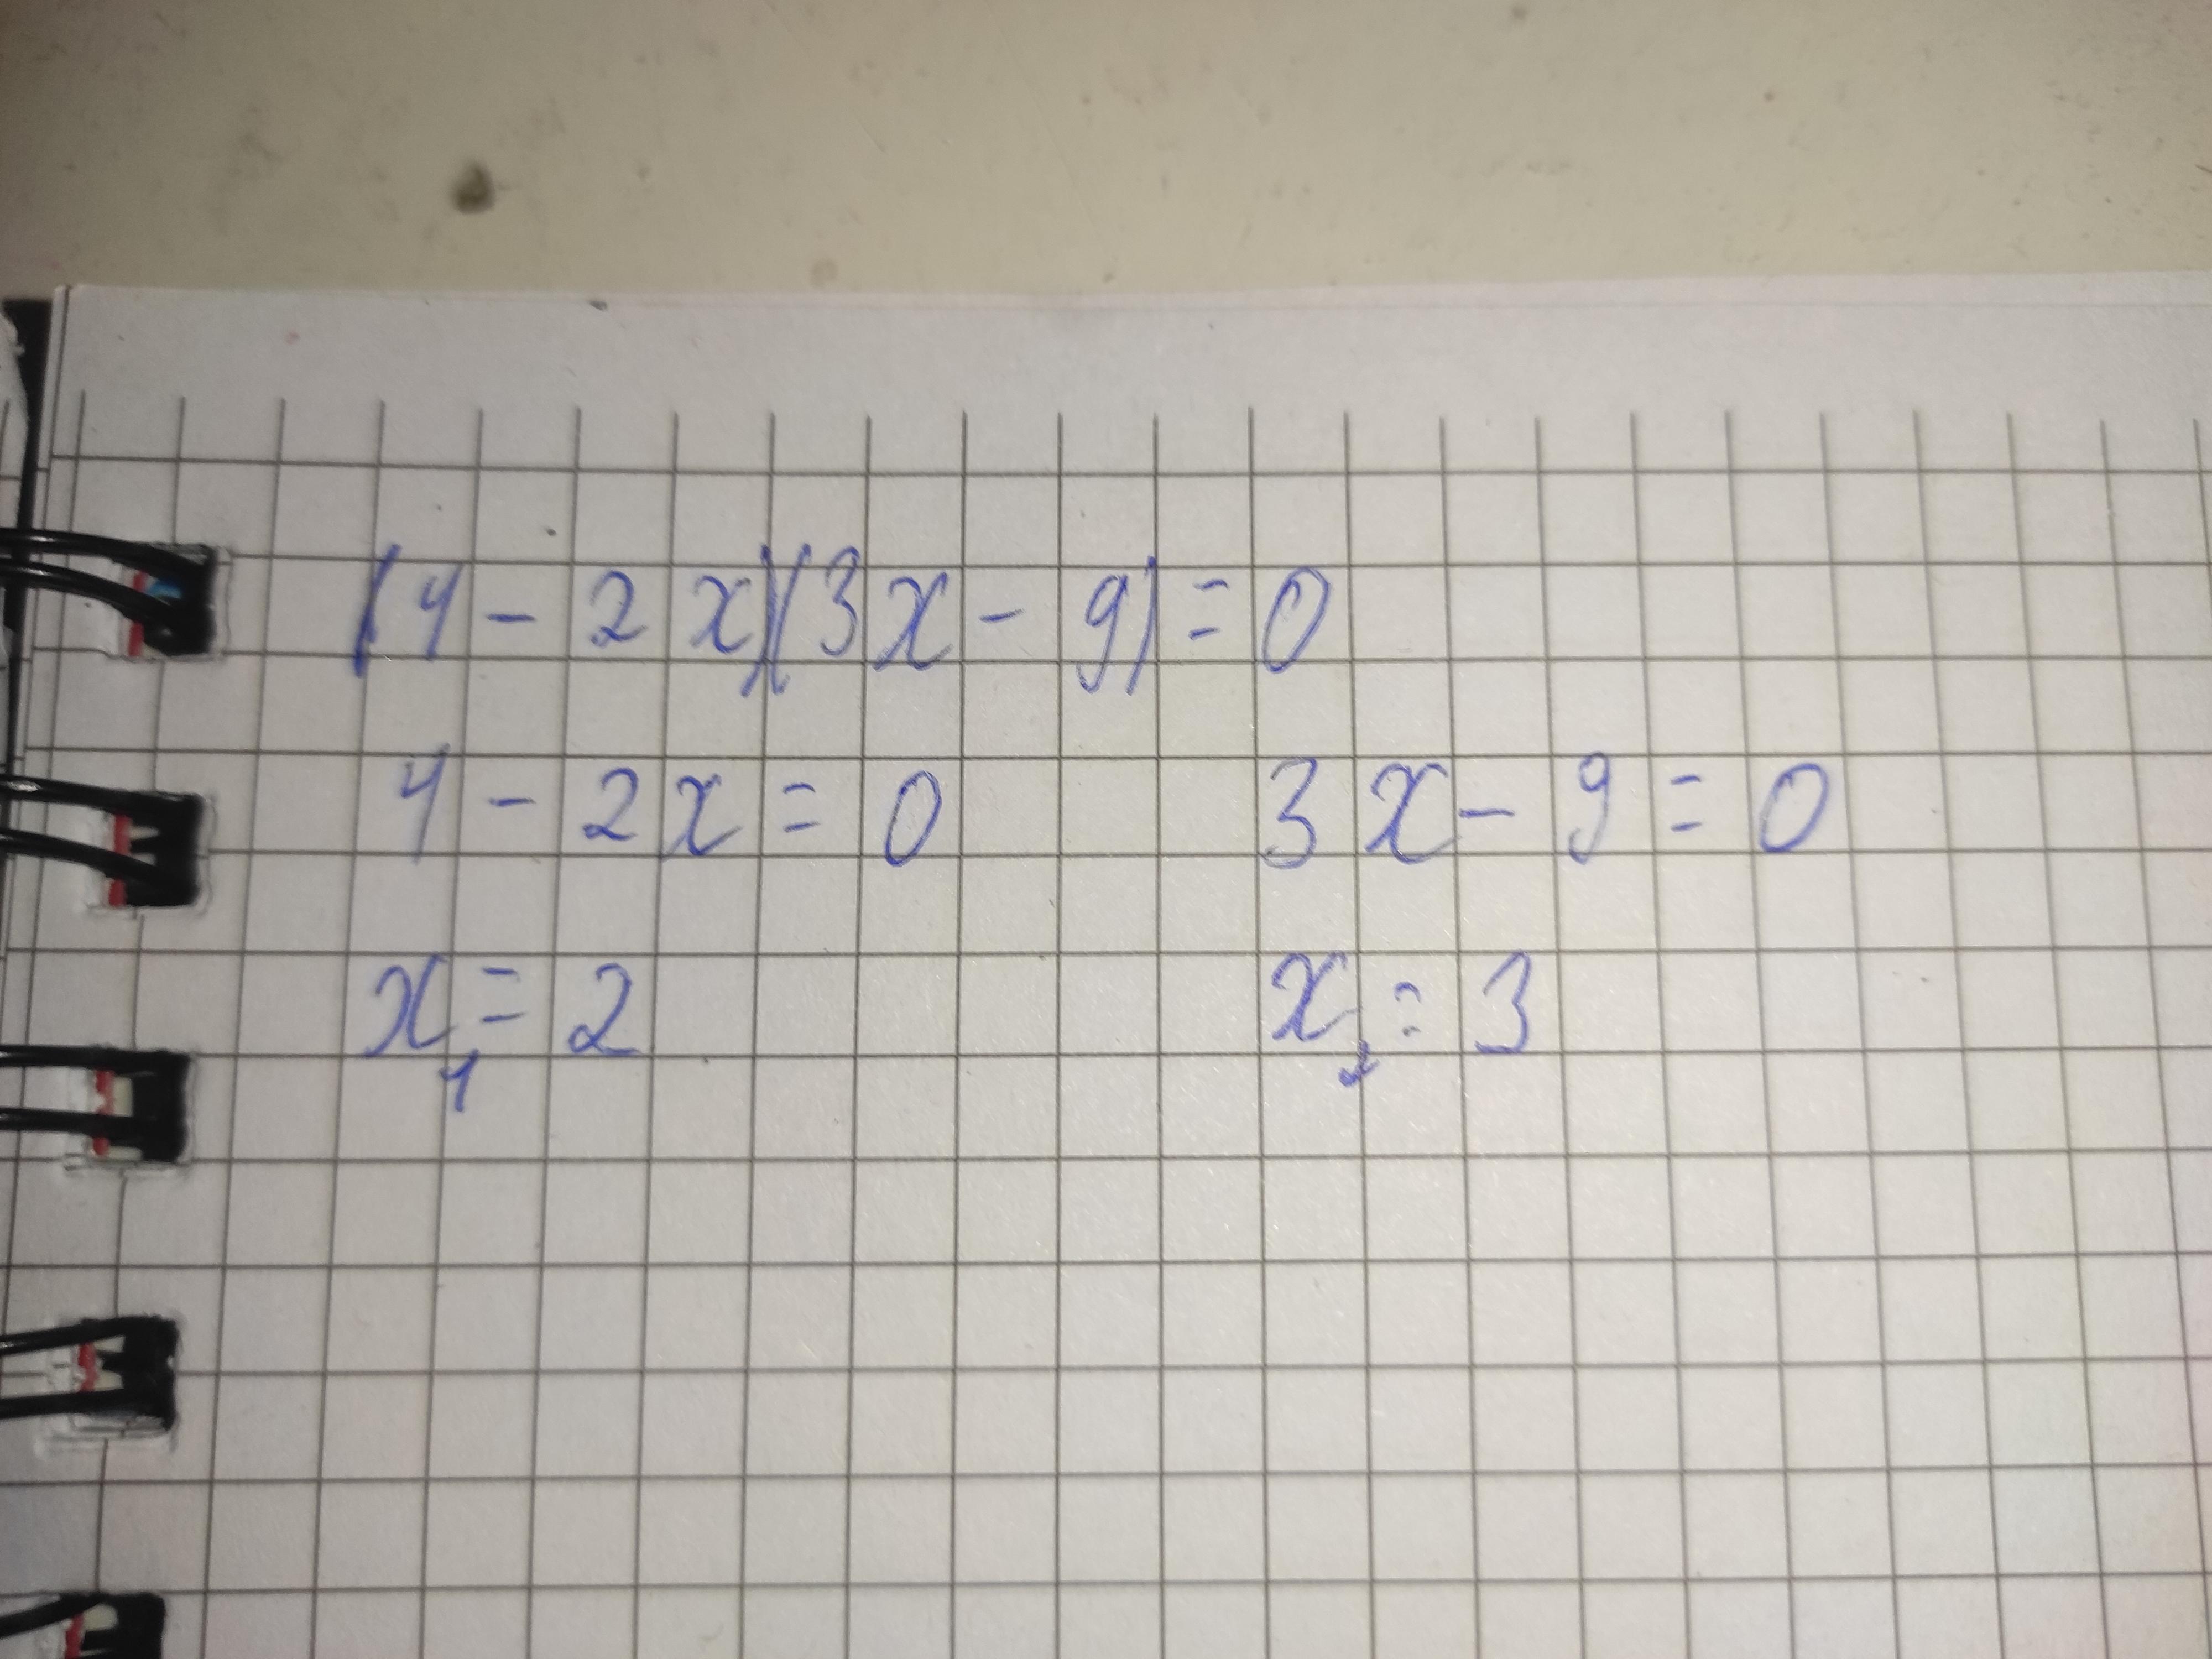 (4-2x)(3x-9)=0
4-2x=0 3x-9=0
x₁=2 x₂=3